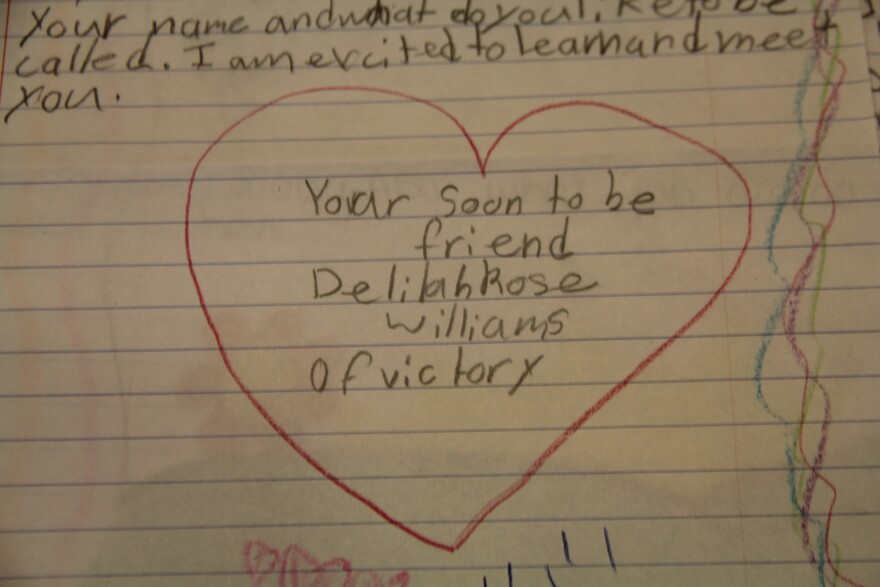 Your name and what do you like to be
called. I am excited to learn and meet
you.
Your soon to be
friend
Delilah Rose
Williams
Of victory